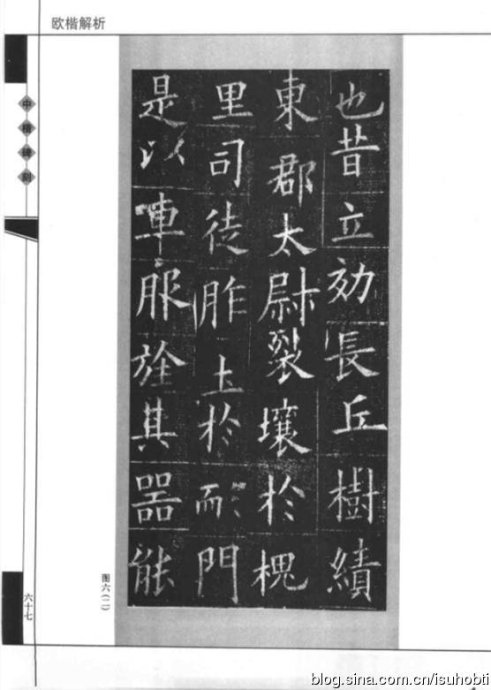 欧楷解析
也昔立効長丘樹績
東郡太尉裂壤於槐
里司徒胙土於耏門
是以車服旌其器能
图六(二)
六十七
blog.sina.com.cn/isuhobti